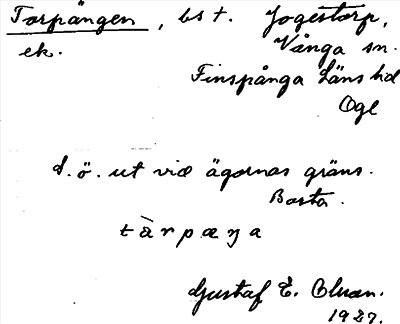 Torpängen, bs t. Jogestorp,
ek. Vånga sn.
Finspånga Läns hd
Ögl
S.ö. ut vid ägornas gräns.
tàrpæŋa
Gustaf E.
1927.